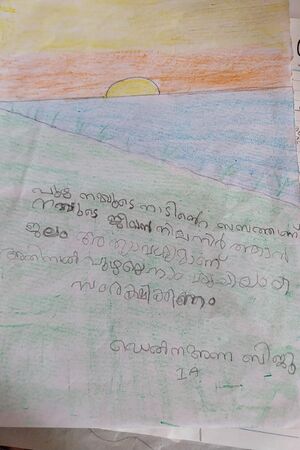 പുഴ നമ്മുടെ നാടിൻ്റെ സമ്പത്താണ്
നമ്മുടെ ജീവൻ നിലനിൽ ത്താൻ
ജലം അത്യാവശ്യമാണ്
അതിനാൽ പുഴയെ നാം
സംരക്ഷിക്കണം
ബിജു
1A